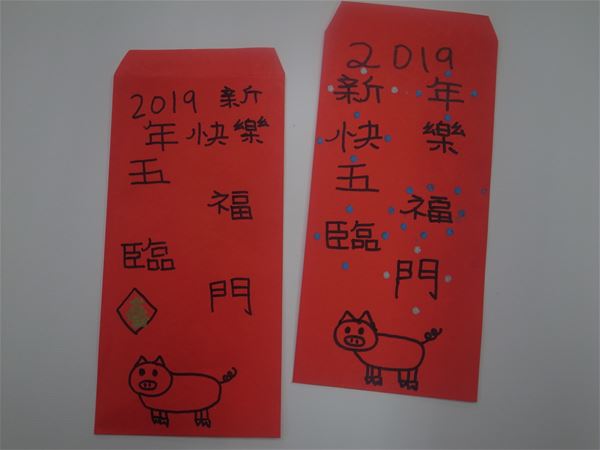 2019 新
年快樂
五
福
臨
門
2019
新年
快樂
五
福
臨
門